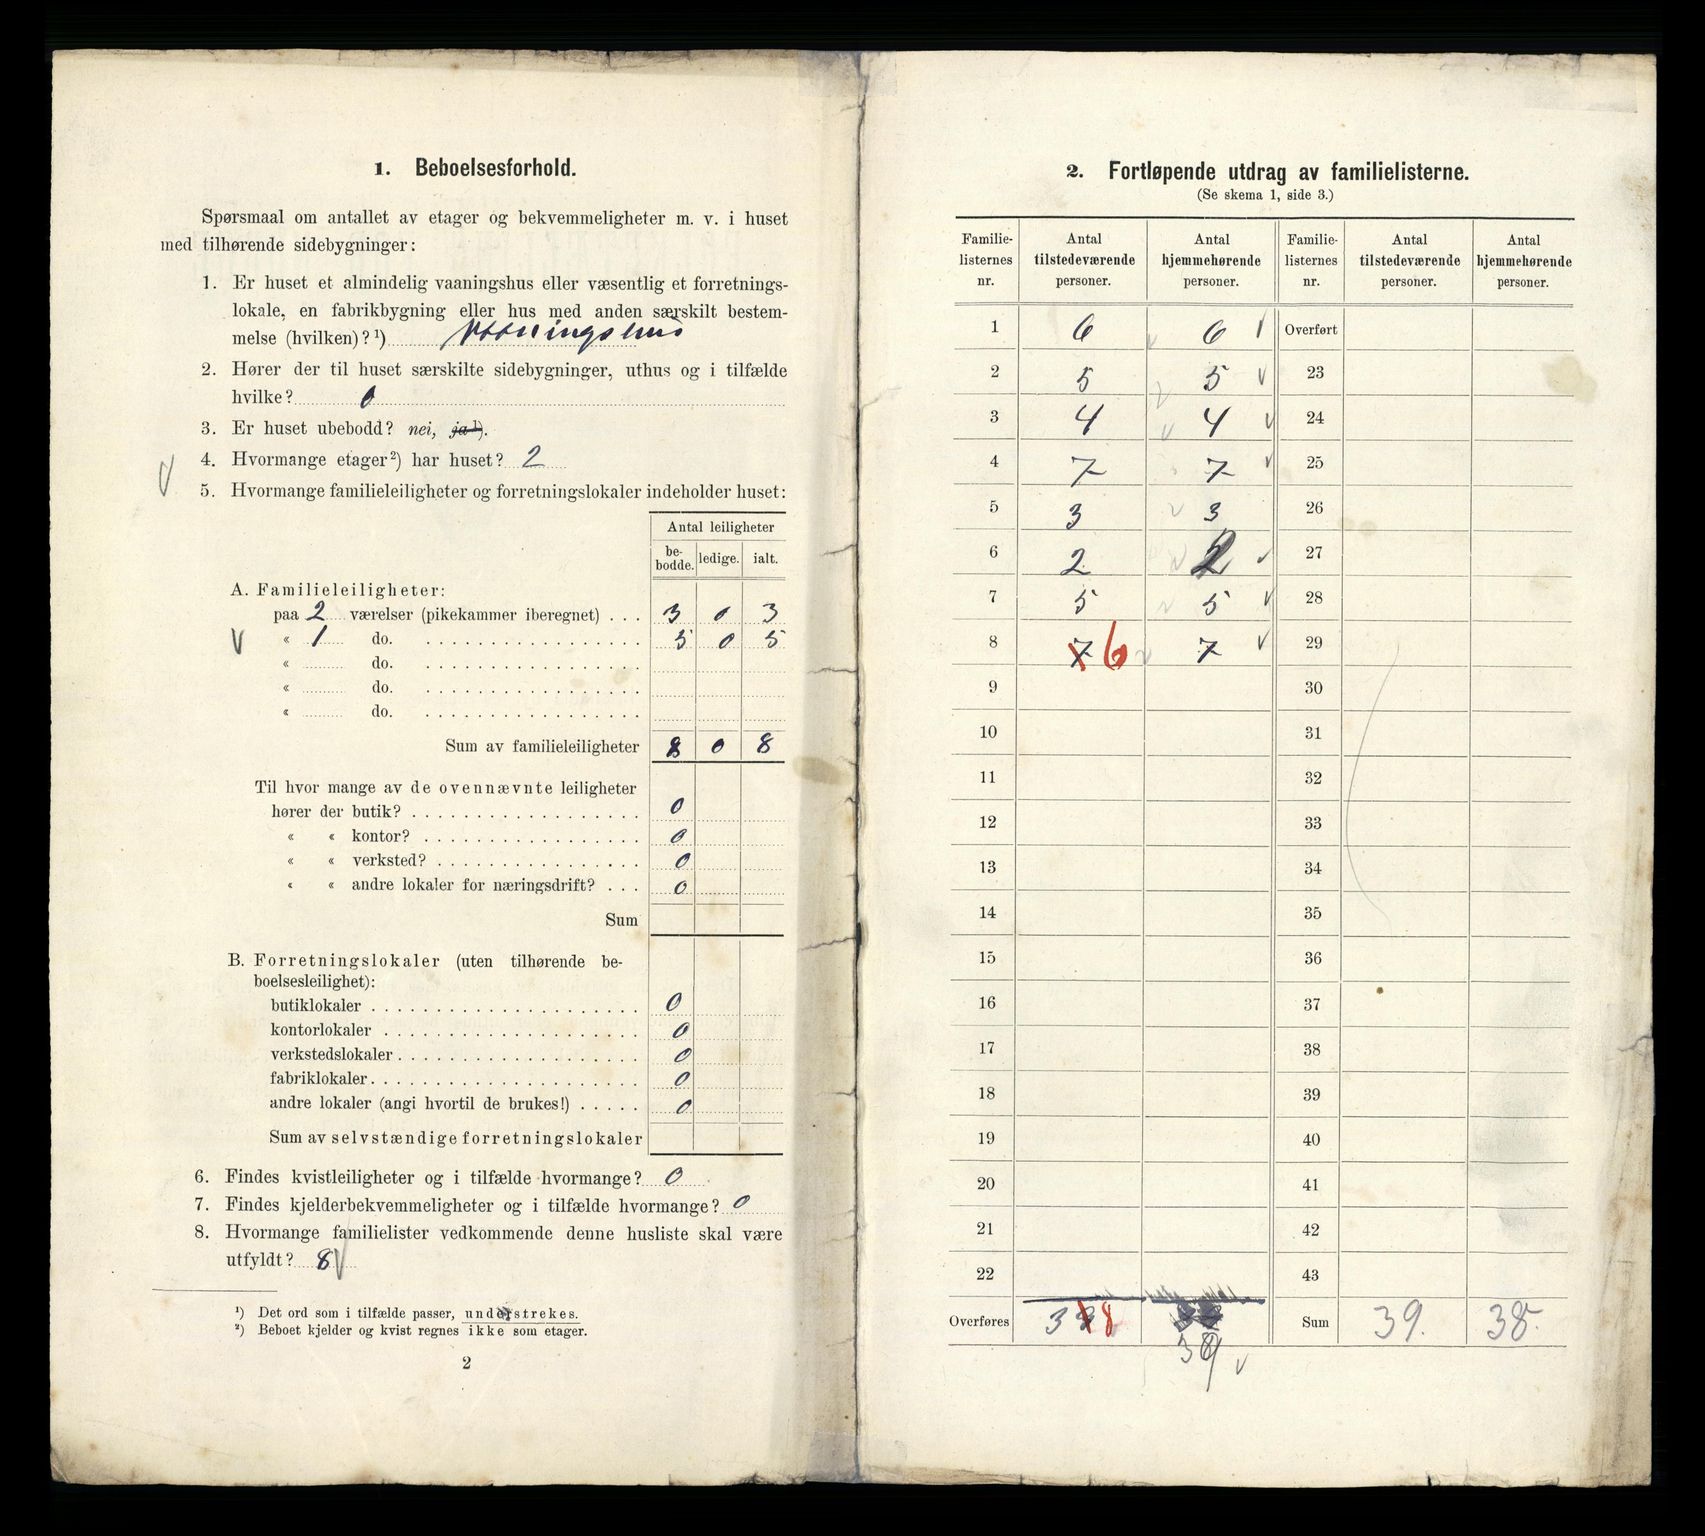 1. Beboelsesforhold.
Spørsmaal om antallet av etager og bekvemmeligheter m. v. i huset
med tilhørende sidebygninger:
1. Er huset et almindelig vaaningshus eller væsentlig et forretnings-
lokale, en fabrikbygning eller hus med anden særskilt bestem-
melse (hvilken)?¹) Vaaningshus
2. Hører der til huset særskilte sidebygninger, uthus og i tilfælde
hvilke? 0
3. Er huset ubebodd? nei, ja¹).
4. Hvormange etager²) har huset? 2
5. Hvormange familieleiligheter og forretningslokaler indeholder huset:
Antal leiligheter
be-bodde. ledige. ialt.
A. Familieleiligheter:
paa 2 værelser (pikekammer iberegnet) . . . 3 0 3
« 1 do. 5 0 5
« do.
« do.
« do.
Sum av familieleiligheter 8 0 8
Til hvor mange av de ovennævnte leiligheter
hører der butik? 0
« « kontor? 0
« « verksted? 0
« « andre lokaler for næringsdrift? . . . 0
Sum
B. Forretningslokaler (uten tilhørende be-
boelsesleilighet):
butiklokaler 0
kontorlokaler 0
verkstedslokaler 0
fabriklokaler 0
andre lokaler (angi hvortil de brukes!) 0
Sum av selvstændige forretningslokaler
6. Findes kvistleiligheter og i tilfælde hvormange? 0
7. Findes kjelderbekvemmeligheter og i tilfælde hvormange? 0
8. Hvormange familielister vedkommende denne husliste skal være
utfyldt? 8
¹) Det ord som i tilfælde passer, understrekes.
²) Beboet kjelder og kvist regnes ikke som etager.
2
2. Fortløpende utdrag av familielisterne.
(Se skema 1, side 3.)
Familie-listernes nr. Antal tilstedeværende personer. Antal hjemmehørende personer. Familie-listernes nr. Antal tilstedeværende personer. Antal hjemmehørende personer.
1 6 6 Overført
2 5 5 23
3 4 4 24
4 7 7 25
5 3 3 26
6 2 2 27
7 5 5 28
8 7 6 7 29
9 30
10 31
11 32
12 33
13 34
14 35
15 36
16 37
17 38
18 39
19 40
20 41
21 42
22 43
Overføres 38 Sum 39. 38.
39